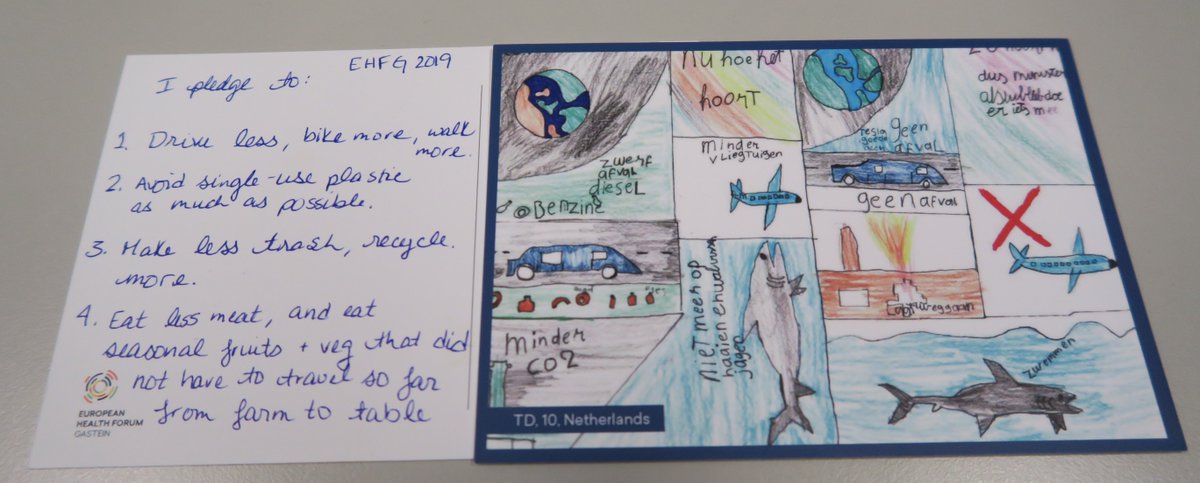 EHFG 2019
I pledge to:
1. Drive less, bike more, walk
more.
2. Avoid single-use plastic
as much as possible.
3. Make less trash, recycle.
more.
4. Eat less meat, and eat
seasonal fruits + veg that did
not have to travel so far
from farm to table
EUROPEAN
HEALTH FORUM
GASTEIN
nu hoe het
hoort
dus minister
er iets mee
zwerf
afval
diesel
Benzine
minder
vliegtuigen
tesla
goede
geen
afval
geen afval
minder
CO2
niet meer op
haaien en walvissen
jagen
zwemmen
TD, 10, Netherlands